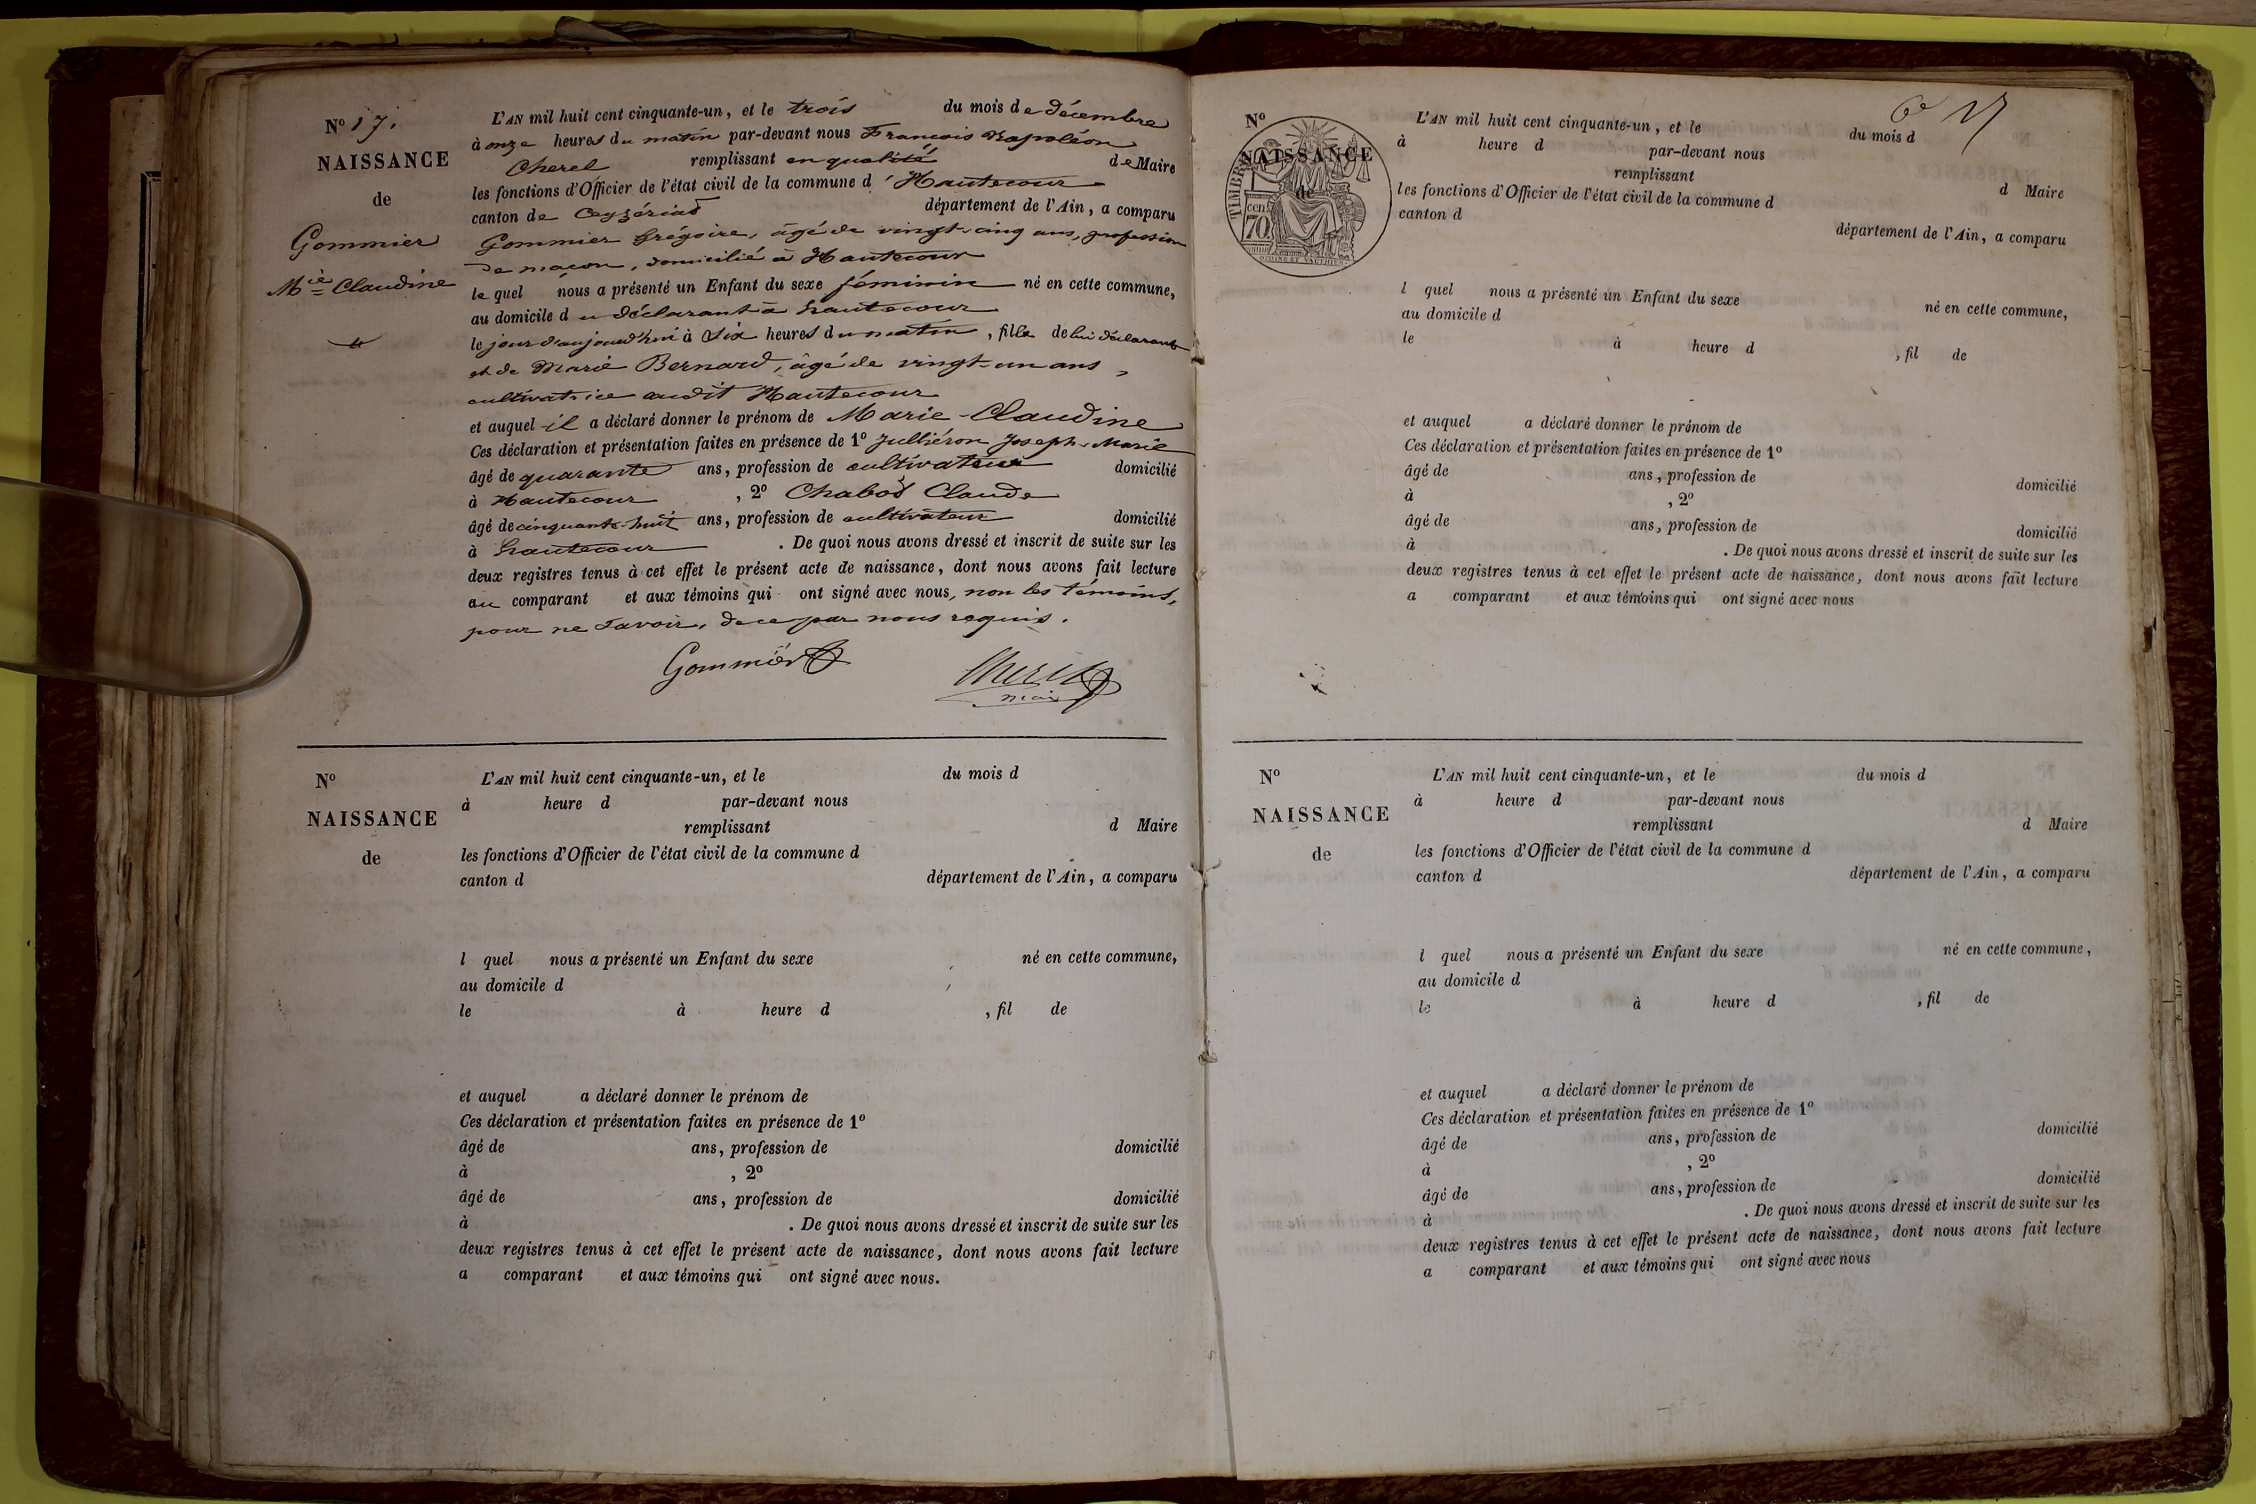 Nº 17.
NAISSANCE
de
Gommier
Mie Claudine
L'AN mil huit cent cinquante-un, et le trois du mois de Décembre
à onze heures du matin par-devant nous François Napoléon
Cherel remplissant en qualité de Maire
les fonctions d'Officier de l'état civil de la commune d'Hautecour
canton de Ceyzériat département de l'Ain, a comparu
Gommier Grégoire, âgé de vingt-cinq ans, profession
de maçon, domicilié à Hautecour
lequel nous a présenté un Enfant du sexe féminin né en cette commune,
au domicile du déclarant à hautecour
le jour d'aujourd'hui à Six heures du matin, fille de lui déclarant
et de Marie Bernard, âgé de vingt-un ans,
cultivatrice audit Hautecour
et auquel il a déclaré donner le prénom de Marie-Claudine
Ces déclaration et présentation faites en présence de 1º Julliéron Joseph-Marie
âgé de quarante ans, profession de cultivateur domicilié
à Hautecour , 2º Chabod Claude
âgé de cinquante-huit ans, profession de cultivateur domicilié
à hautecour . De quoi nous avons dressé et inscrit de suite sur les
deux registres tenus à cet effet le présent acte de naissance, dont nous avons fait lecture
au comparant et aux témoins qui ont signé avec nous, non les témoins,
pour ne savoir, de ce par nous requis.
Gommier Cherel
maire
Nº
NAISSANCE
de
L'AN mil huit cent cinquante-un, et le du mois d
à heure d par-devant nous
remplissant d Maire
les fonctions d'Officier de l'état civil de la commune d
canton d département de l'Ain, a comparu
l quel nous a présenté un Enfant du sexe né en cette commune,
au domicile d
le à heure d , fil de
et auquel a déclaré donner le prénom de
Ces déclaration et présentation faites en présence de 1º
âgé de ans, profession de domicilié
à , 2º
âgé de ans, profession de domicilié
à . De quoi nous avons dressé et inscrit de suite sur les
deux registres tenus à cet effet le présent acte de naissance, dont nous avons fait lecture
a comparant et aux témoins qui ont signé avec nous.
Nº
NAISSANCE
de
TIMBRE
70 cent
L'AN mil huit cent cinquante-un, et le du mois d
à heure d par-devant nous
remplissant d Maire
les fonctions d'Officier de l'état civil de la commune d
canton d département de l'Ain, a comparu
l quel nous a présenté un Enfant du sexe né en cette commune,
au domicile d
le à heure d , fil de
et auquel a déclaré donner le prénom de
Ces déclaration et présentation faites en présence de 1º
âgé de ans, profession de domicilié
à , 2º
âgé de ans, profession de domicilié
à . De quoi nous avons dressé et inscrit de suite sur les
deux registres tenus à cet effet le présent acte de naissance, dont nous avons fait lecture
a comparant et aux témoins qui ont signé avec nous
Nº
NAISSANCE
de
L'AN mil huit cent cinquante-un, et le du mois d
à heure d par-devant nous
remplissant d Maire
les fonctions d'Officier de l'état civil de la commune d
canton d département de l'Ain, a comparu
l quel nous a présenté un Enfant du sexe né en cette commune,
au domicile d
le à heure d , fil de
et auquel a déclaré donner le prénom de
Ces déclaration et présentation faites en présence de 1º
âgé de ans, profession de domicilié
à , 2º
âgé de ans, profession de domicilié
à . De quoi nous avons dressé et inscrit de suite sur les
deux registres tenus à cet effet le présent acte de naissance, dont nous avons fait lecture
a comparant et aux témoins qui ont signé avec nous